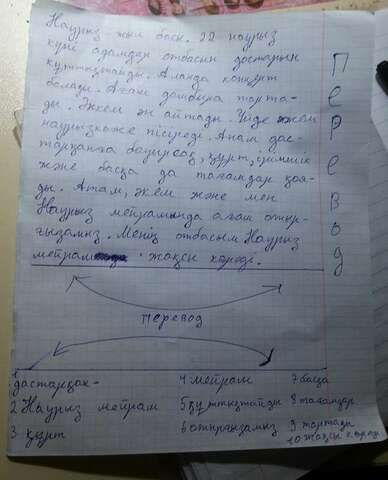 Наурыз жыл басы. 22 наурыз
күні адамдар отбасын достарын
құттықтайды. Алаңда концерт
болады. Ағам домбыра тарта-
ды. Әкем ән айтады. Үйде әжем
наурызкөже пісіреді. Анам дас-
тарқанға бауырсақ, құрт, ірімшік
және басқа да тағамдар қоя-
ды. Атам, әкем және мен
Наурыз мейрамында ағаш отыр-
ғызамыз. Менің отбасым Наурыз
мейрамы жақсы көреді.
Перевод
Перевод
1 дастарқан-
2 Наурыз мейрам
3 құрт
4 мейрам
5 құттықтайды
6 отырғызамыз
7 басқа
8 тағамдар
9 тартады
10 жақсы көреді